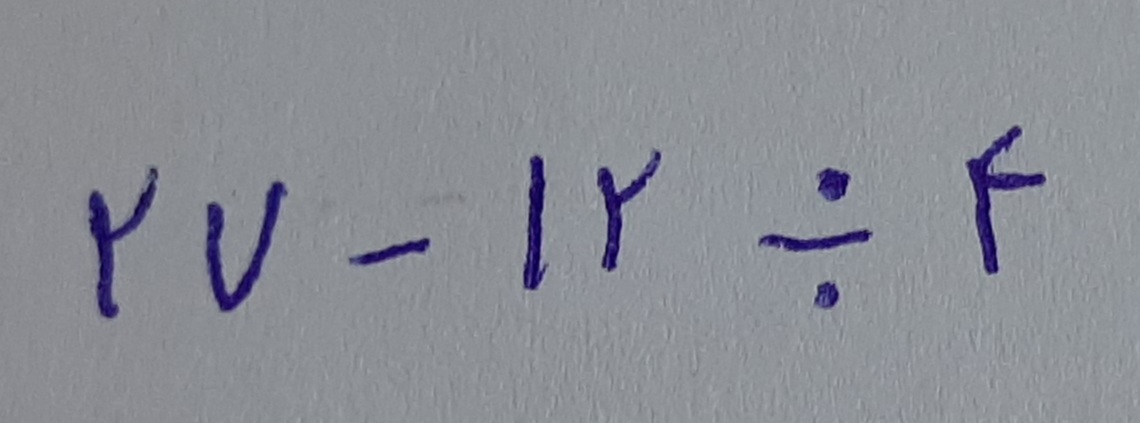 ۲۷ - ۱۲ ÷ ۴